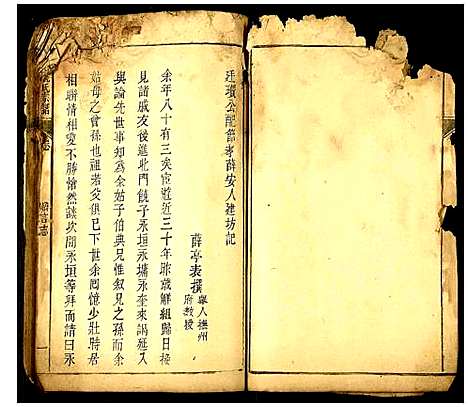 廷璸公配節孝薛安人建坊記
薛亭表撰 舉人撫州府教授
余年八十有三矣宦遊近三十年昨歲解組歸日接
見諸戚友後進北門饒子永垣永墉永奎來謁延入
與論先世事知為余姑子伯典兄惟叙見之孫而余
姑母之曾孫也祖若父俱已下世余囘憶少壯時居
相聯情相愛不勝愴然談次間永垣等拜而請曰永
氏宗譜